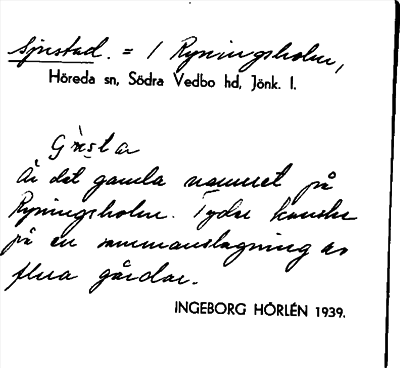 Sjustad. = / Ryningsholm,
Höreda sn, Södra Vedbo hd, Jönk. l.
Är det gamla namnet på
Ryningsholm. Tyder kanske
på en sammanslagning av
flera gårdar.
INGEBORG HÖRLÉN 1939.